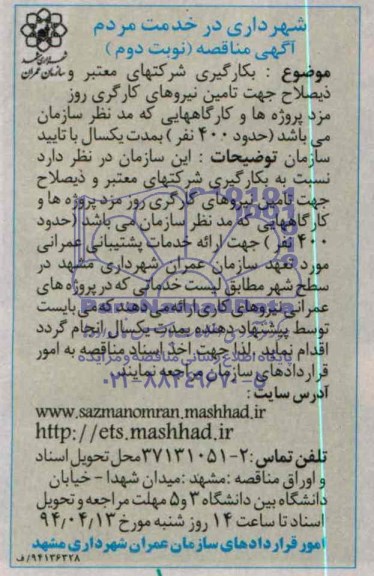 شهرداری در خدمت مردم
آگهی مناقصه (نوبت دوم)
سازمان عمران
موضوع : بکارگیری شرکتهای معتبر و
ذیصلاح جهت تامین نیروهای کارگری روز
مزد پروژه ها و کارگاههایی که مد نظر سازمان
می باشد (حدود ۴۰۰ نفر) بمدت یکسال با تایید
سازمان توضیحات : این سازمان در نظر دارد
نسبت به بکار گیری شرکتهای معتبر و ذیصلاح
جهت تامین نیروهای کارگری روز مزد پروژه ها و
کارگاههایی که مد نظر سازمان می باشد (حدود
۴۰۰ نفر) جهت ارائه خدمات پشتیبانی عمرانی
مورد تعهد سازمان عمران شهرداری مشهد در
سطح شهر مطابق لیست خدماتی که در پروژه های
عمرانی نیروهای کاری ارائه می دهند که می بایست
توسط پیشنهاد دهنده بمدت یکسال انجام گردد
اقدام نماید. لذا جهت اخذ اسناد مناقصه به امور
قراردادهای سازمان مراجعه نمایند.
پایگاه اطلاع رسانی مناقصه و مزایده
۰۲۱-۸۸۳۴۹۶۷۰
آدرس سایت :
www.sazmanomran.mashhad.ir
http://ets.mashhad.ir
تلفن تماس: ۲-۳۷۱۳۱۰۵۱ محل تحویل اسناد
و اوراق مناقصه : مشهد : میدان شهدا - خیابان
دانشگاه بین دانشگاه ۳ و ۵ مهلت مراجعه و تحویل
اسناد تا ساعت ۱۴ روز شنبه مورخ ۹۴،۰۴،۱۳
امور قراردادهای سازمان عمران شهرداری مشهد
۹۴۱۳۶۳۲۸/ف